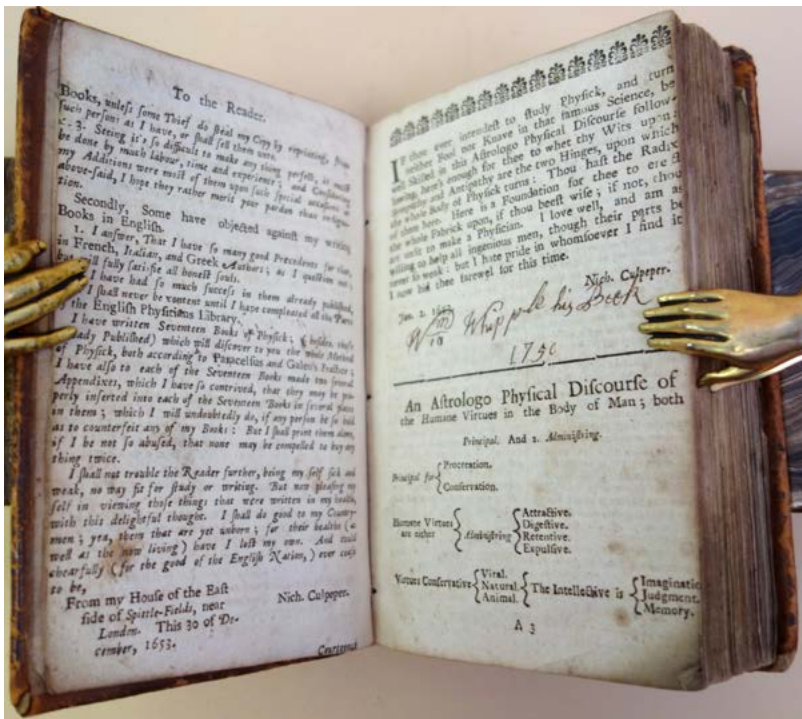 To the Reader.
Books, unleſs ſome Thief do ſteal my Copy by reprinting, from
ſuch perſons as I have, or ſhall ſell them unto.
3. Seeing it's ſo difficult to make any thing perfect, it muſt
be done by much labour, time and experience; and Conſidering
my Additions were moſt of them upon ſuch ſpecial occaſions as
above-ſaid, I hope they rather merit your pardon than
tion.
Secondly, Some have objected againſt my writing
Books in Engliſh.
1. I anſwer, That I have ſo many good Precedents for that,
in French, Italian, and Greek Authors; as I queſtion not,
but will fully ſatisfie all honeſt ſouls.
I have had ſo much ſucceſs in them already publiſhed,
I ſhall never be content until I have compleated all the Parts
of the Engliſh Phyſitians Library.
I have written Seventeen Books of Phyſick; (beſides thoſe
ady Publiſhed) which will diſcover to you the whole Method
of Phyſick, both according to Paracelſus and Galen's Practice;
I have alſo to each of the Seventeen Books made two ſeveral
Appendixes, which I have ſo contrived, that they may be pro-
perly inſerted into each of the Seventeen Books in ſeveral places
in them; which I will undoubtedly do, if any perſon be ſo bold
as to counterfeit any of my Books: But I ſhall print them alone,
if I be not ſo abuſed, that none may be compelled to buy any
thing twice.
I ſhall not trouble the Reader further, being my ſelf ſick and
weak, no way fit for ſtudy or writing. But now pleaſing my
ſelf in viewing thoſe things that were written in my health,
with this delightful thought. I ſhall do good to my Country-
men; yea, them that are yet unborn; for their healths (as
well as the now living) have I loſt my own. And could
chearfully (for the good of the Engliſh Nation,) even ceaſe
to be,
From my Houſe of the Eaſt
ſide of Spittle-Fields, near
London. This 30 of De-
cember, 1653.
Nich. Culpeper.
Courteous
IF thou ever intendeſt to ſtudy Phyſick, and turn
neither Fool nor Knave in that famous Science, be
well Skilled in this Aſtrologo Phyſical Diſcourſe follow-
lowing, here's enough for thee to whet thy Wits upon:
Sympathy and Antipathy are the two Hinges, upon which
the whole Body of Phyſick turns: Thou haſt the Radix
of them here. Here is a Foundation for thee to erect
the whole Fabrick upon, if thou beeſt wiſe; if not, thou
art unfit to make a Phyſician. I love well, and am as
willing to help all ingenious men, though their parts be
never ſo weak: but I hate pride in whomſoever I find it
I now bid thee farewel for this time.
Nich. Culpeper.
Jan. 2.
Wm Whipple his Book
1750
An Aſtrologo Phyſical Diſcourſe of
the Humane Virtues in the Body of Man; both
Principal. And 2. Adminiſtring.
Principal for { Procreation.
Conſervation.
Humane Virtues are either { Adminiſtring { Attractive.
Digeſtive.
Retentive.
Expulſive.
Virtues Conſervative { Viral.
Natural.
Animal. { The Intellective is { Imaginatio
Judgment.
Memory.
A 3